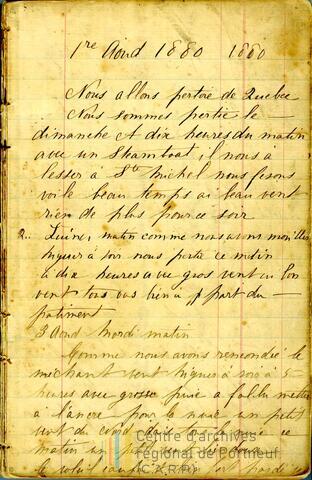 1re Aoud 1880 1880
Nous allons pertire de Quebec
Nous sommes pertie le
dimanche et dix heures du matin
avec un Steamboat il nous à
lesser a Ste Michel nous fesons
voile beau temps ai beau vent
rien de plus pour ce soir
2.. matin comme nous avons
hiquer à soir nous perte ce metin
à dix heures avec gros vent en bon
vent tous vas bien a part du
patiment
3 Aoud Mordi matin
Comme nous avons le
mechant vent hiquer à soir a 5
heures avec grosse a fallu metter
à l'ancre pour la nuit un petit
vent du nord tous ce
matin un
le
Centre d'archives
régional de Portneuf
(C.A.R.P.)